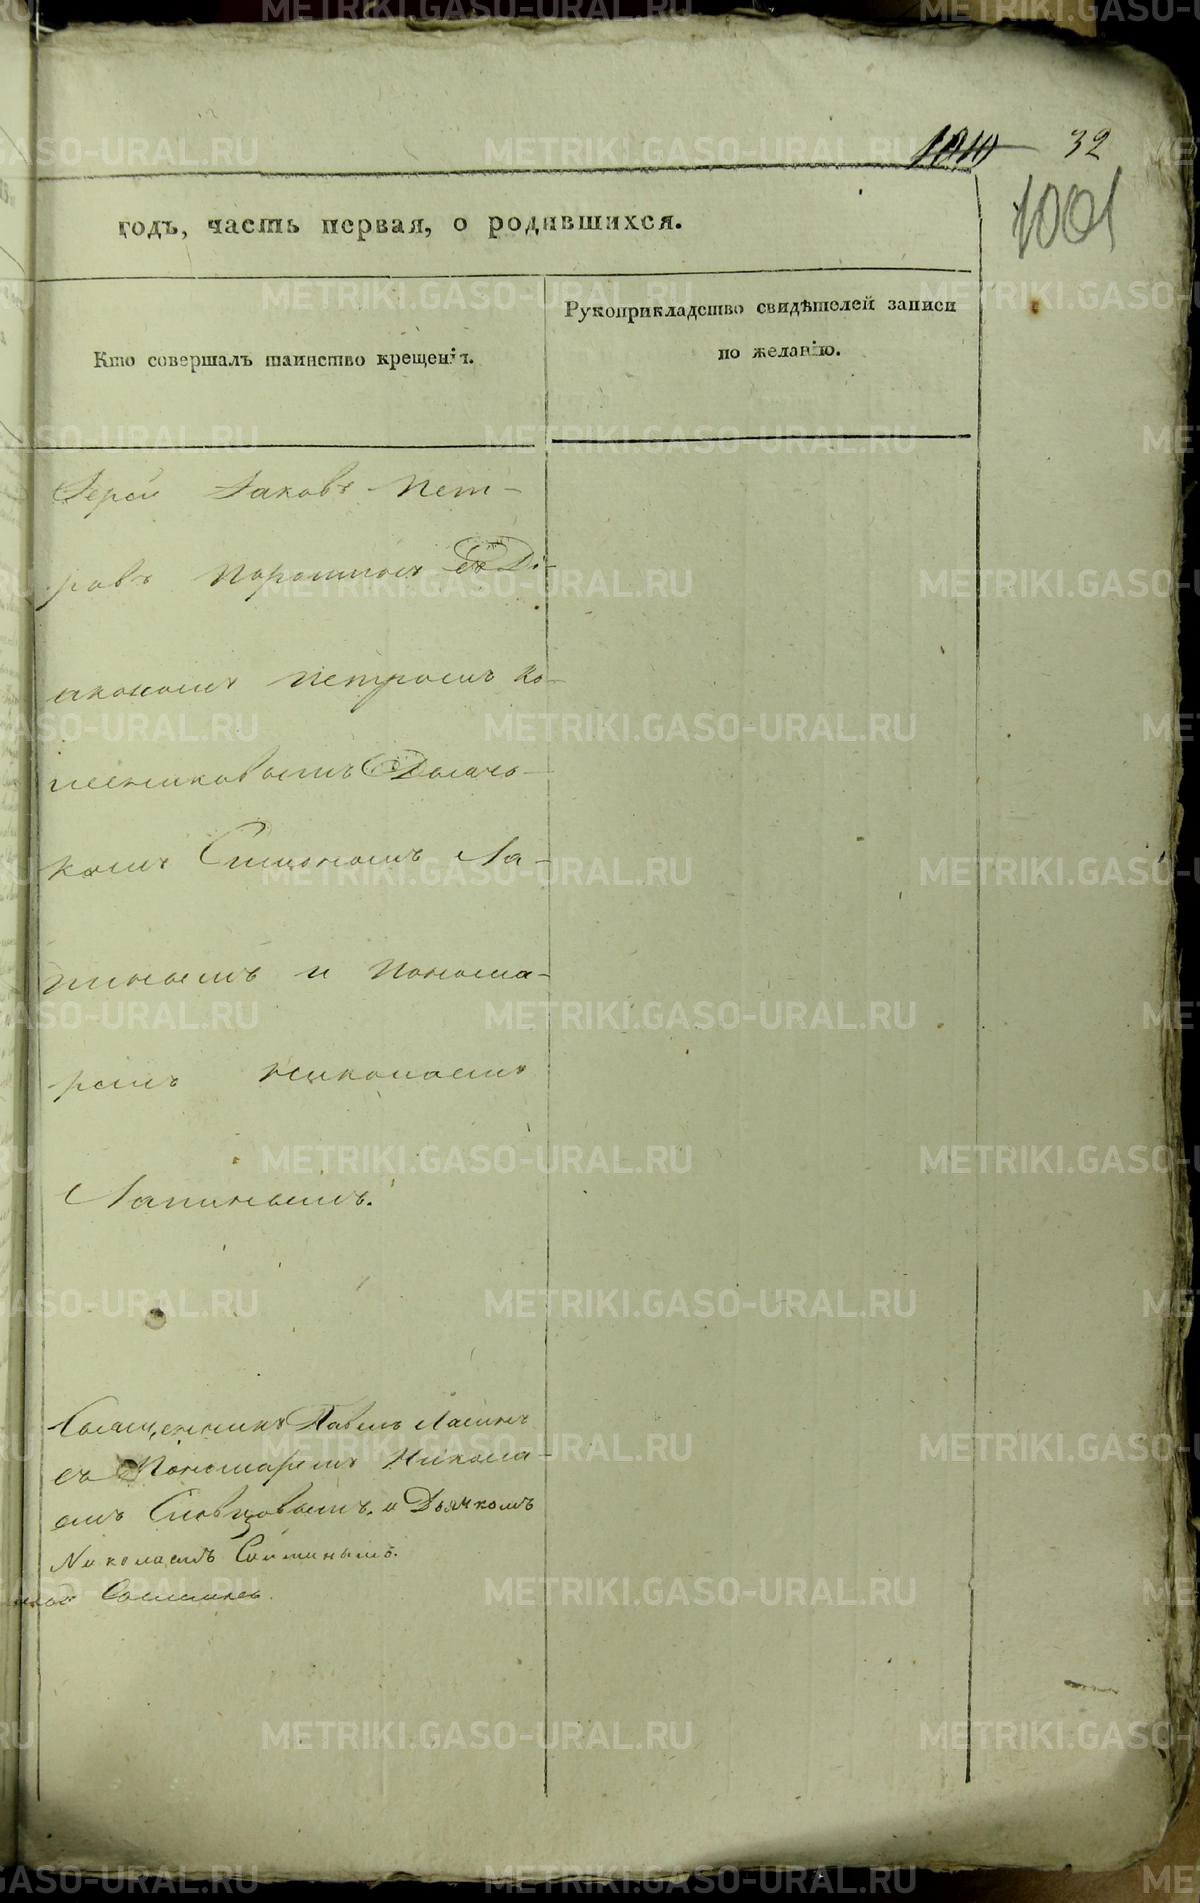 1010 32
1001
годъ, часть первая, о родившихся.
Кто совершалъ таинство крещенія.
Рукоприкладство свидѣтелей записи
по желанію.
Іерей Іаковъ Пет-
ровъ Порошинъ съ Ді-
акономъ Петромъ Ко-
лесниковымъ Дьяч-
комъ Симономъ Ла-
пинымъ и Понома-
ремъ Николаемъ
Лапинымъ.
Священникъ Павелъ
съ Пономаремъ Никола-
емъ Словцовымъ, и Дьячкомъ
Николаемъ
METRIKI.GASO-URAL.RU